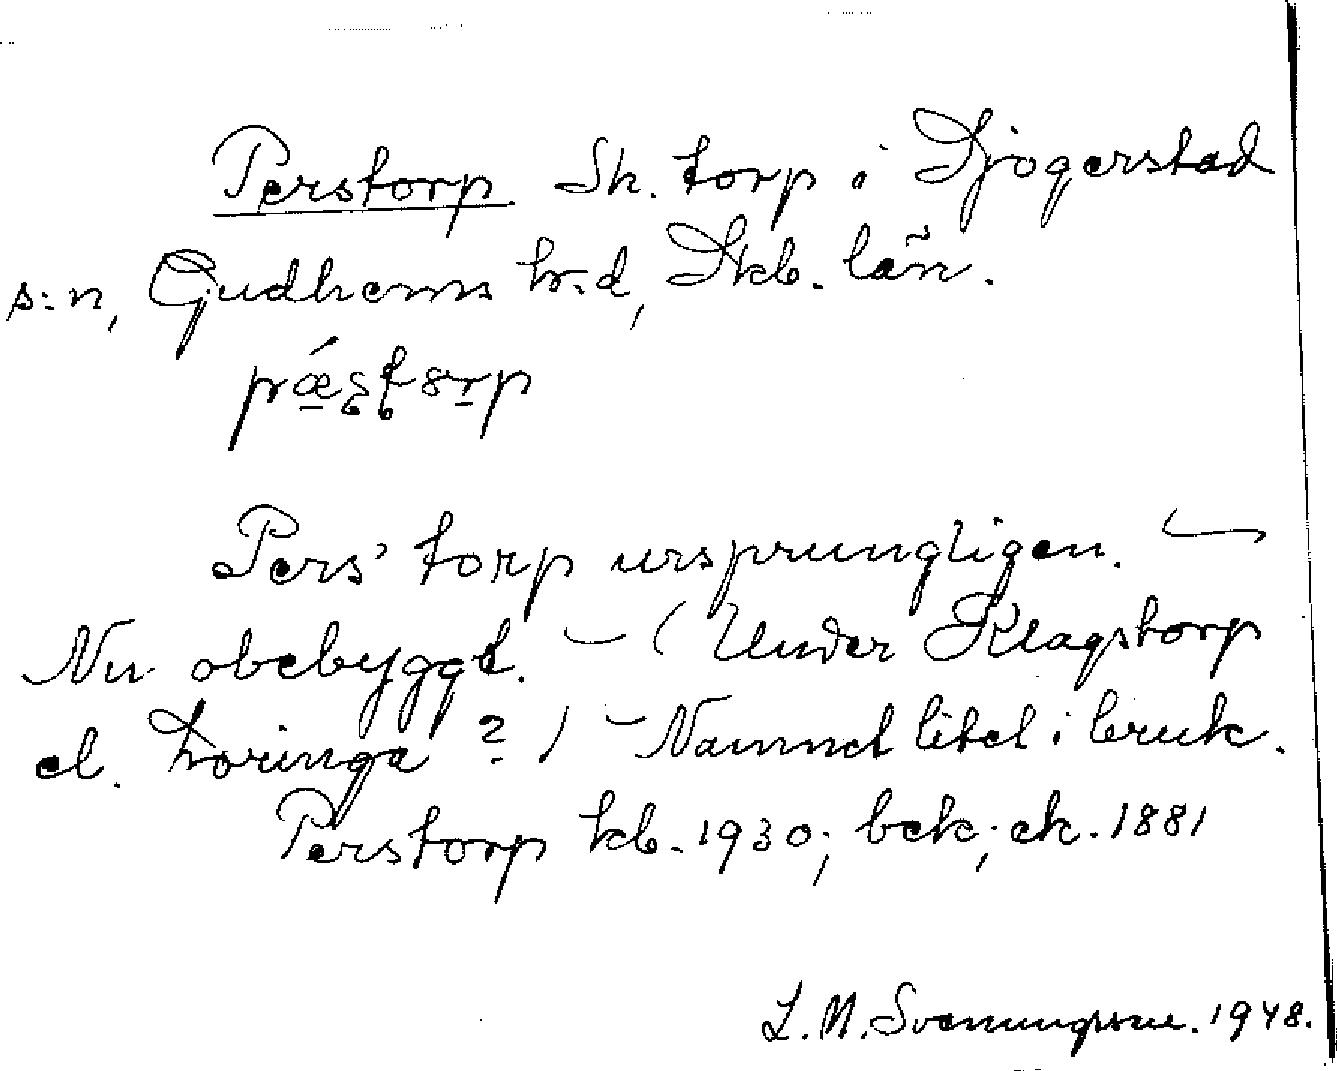 Perstorp Sk. torp i Djogerstad
s:n, Gudhems h:d, Skb. län.
Pers' torp ursprungligen. —
Nu obebyggt. — (Under Klagstorp
el. Loringa ?) — Namnet litet i bruk.
Perstorp kb. 1930; bek; ek. 1881
L. M. Svenungsson. 1948.